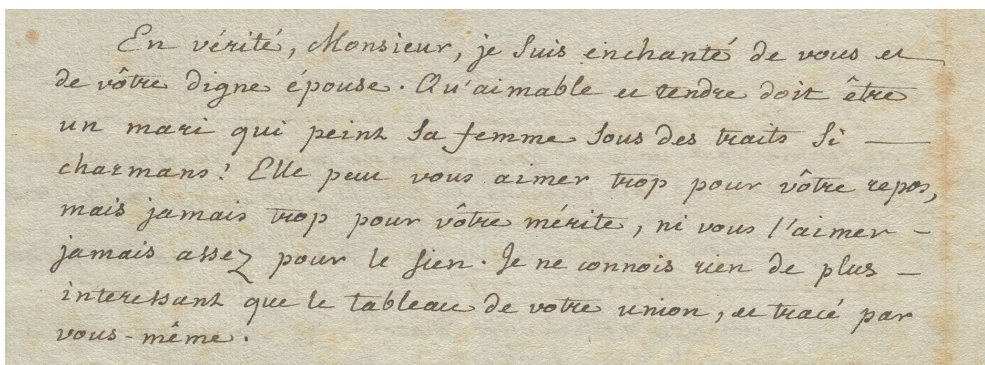 En vérité, Monsieur, je suis enchanté de vous et
de vôtre digne épouse. Qu'aimable et tendre doit être
un mari qui peint sa femme sous des traits si —
charmans! Elle peut vous aimer trop pour vôtre repos,
mais jamais trop pour vôtre mérite, ni vous l'aimer –
jamais assez pour le sien. Je ne connois rien de plus –
interessant que le tableau de votre union, et tracé par
vous-même.